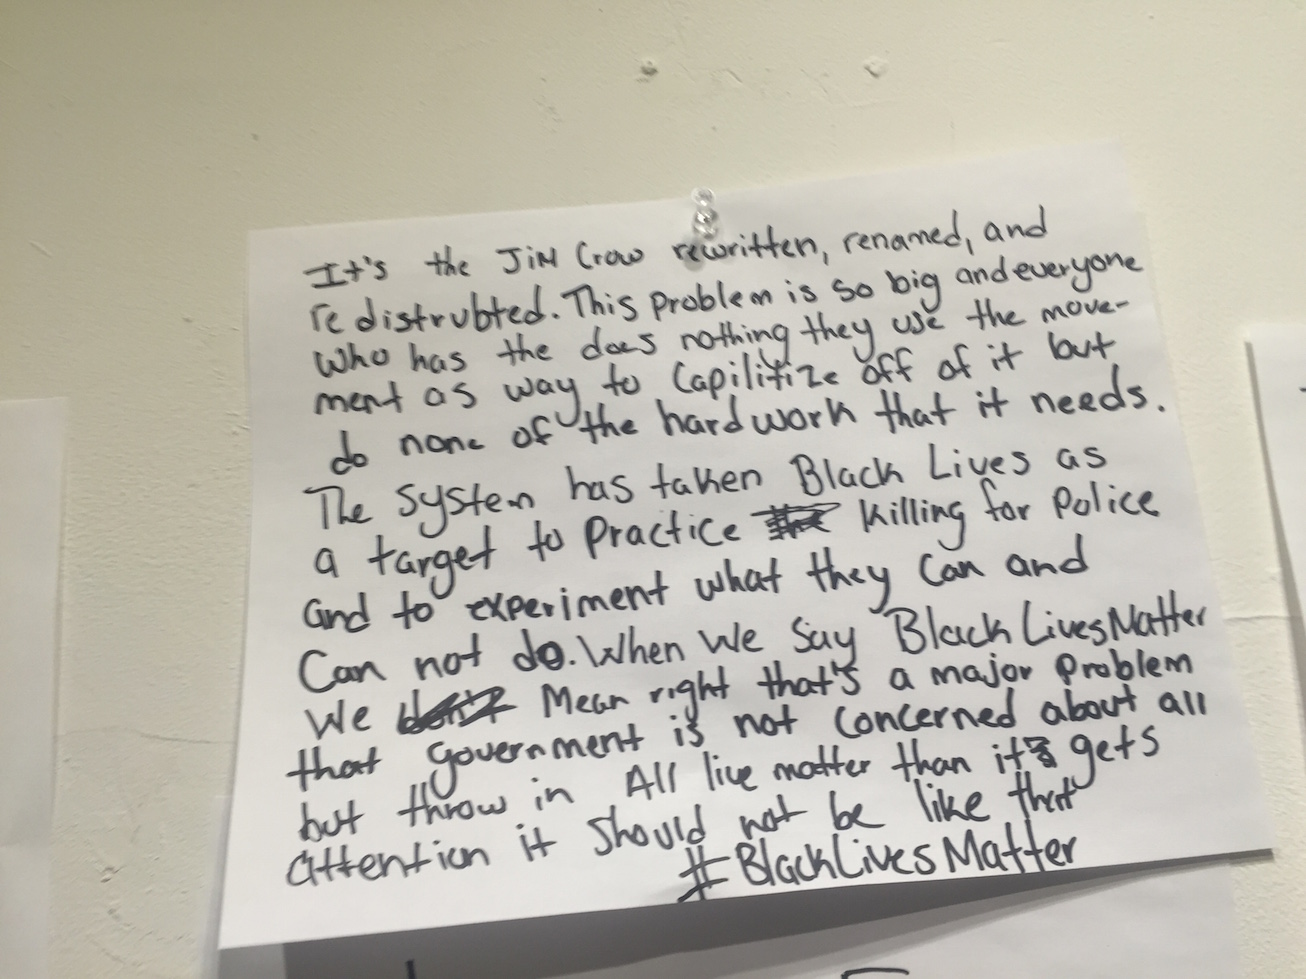 It's the JIM Crow rewritten, renamed, and
redistrubted. This problem is so big and everyone
who has the does nothing they use the move-
ment as way to Capilitize off of it but
do none of the hard work that it needs.
The system has taken Black Lives as
a target to Practice killing for Police
and to experiment what they can and
Can not do. When We Say Black Lives Matter
We Mean right that's a major Problem
that government is not concerned about all
but throw in All live matter than it gets
Attention it should not be like that
#BlackLivesMatter